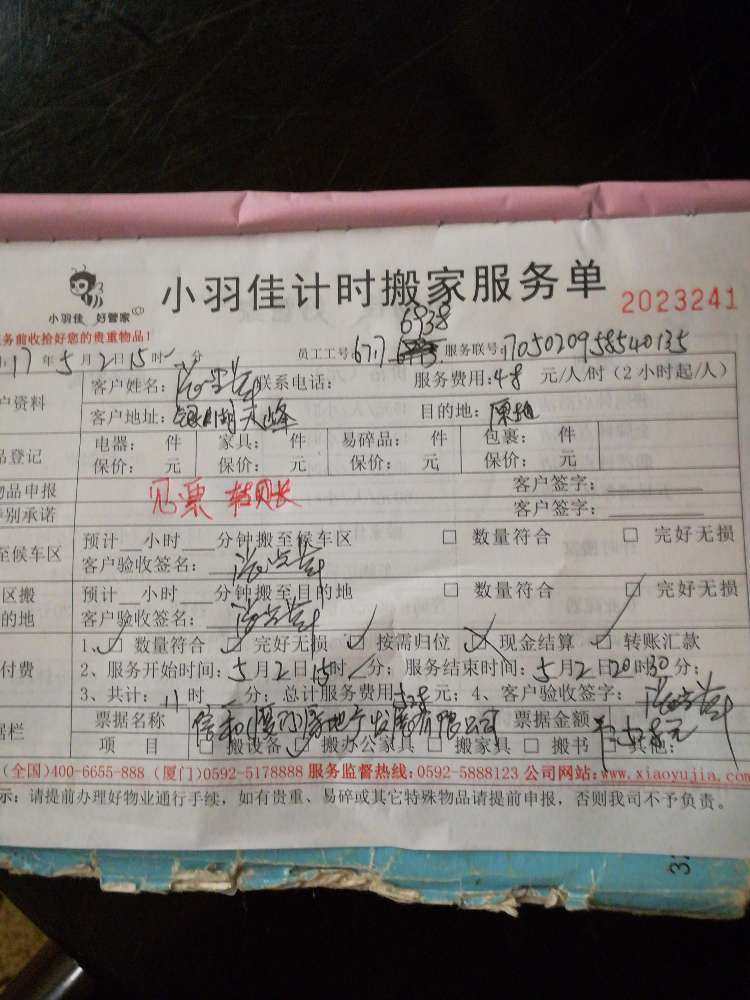 小羽佳 好管家
小羽佳计时搬家服务单
2023241
务前收拾好您的贵重物品!
17年5月2日15时 分
员工工号 6717 6938 服务联号:1705020958540135
户资料
客户姓名: 联系电话: 服务费用:48 元/人/时(2小时起/人)
客户地址: 天峰 目的地:原地
品登记
电器: 件 家具: 件 易碎品: 件 包裹: 件
保价: 元 保价: 元 保价: 元 保价: 元
物品申报
见票 客户签字:
特别承诺
客户签字:
至候车区
预计 小时 分钟搬至候车区 □ 数量符合 □ 完好无损
客户验收签名:
区搬
预计 小时 分钟搬至目的地 □ 数量符合 □ 完好无损
的地
客户验收签名:
付费
1、□ 数量符合 □ 完好无损 □ 按需归位 □ 现金结算 □ 转账汇款
2、服务开始时间:5月2日15时 分;服务结束时间:5月2日20时30分;
3、共计:11时 分;总计服务费用528元;4、客户验收签字:
据栏
票据名称 信和(厦门)房地产发展有限公司 票据金额 528元
项 目 □ 搬设备 □ 搬办公家具 □ 搬家具 □ 搬书 □ 其他:
(全国)400-6655-888 (厦门)0592-5178888 服务监督热线:0592-5888123 公司网站:www.xiaoyujia.com
示:请提前办理好物业通行手续,如有贵重、易碎或其它特殊物品请提前申报,否则我司不予负责。